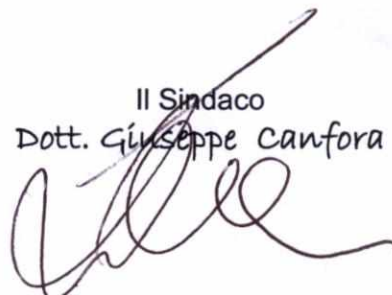 Il Sindaco
Dott. Giuseppe Canfora